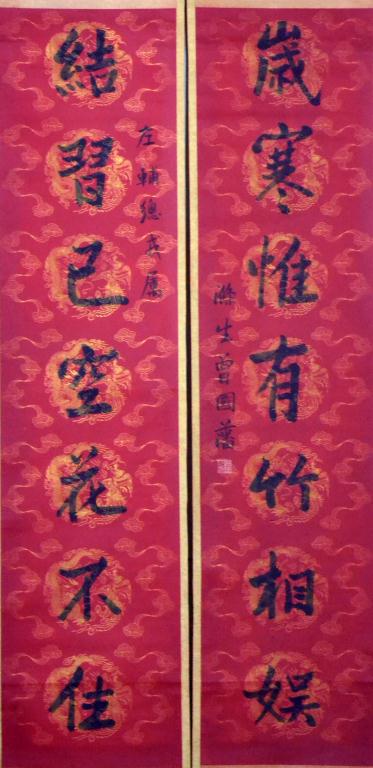 歲寒惟有竹相娛
滌生曾國藩
結習已空花不住
左輔總戎屬